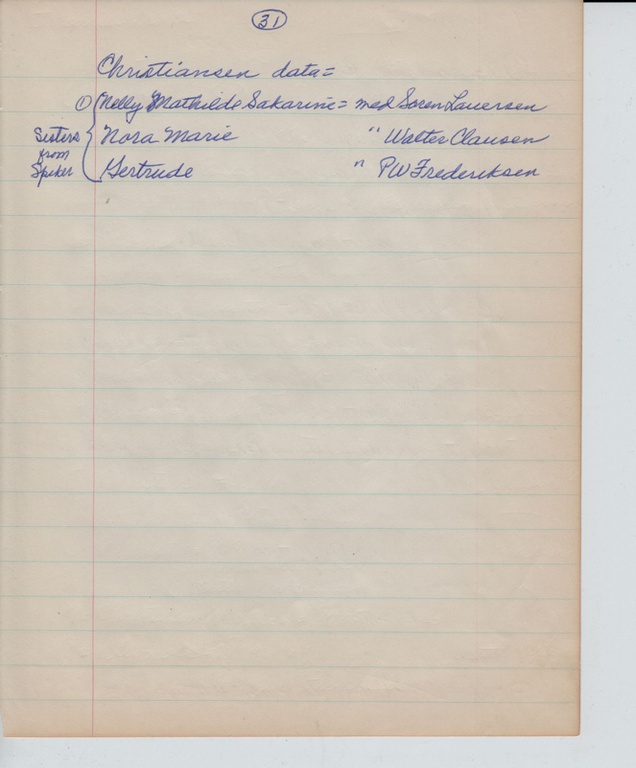 31
Christiansen data=
① Nelly Mathilde Sakarine = med Soren Lauersen
Sisters from Spiker
Nora Marie " Walter Clausen
Gertrude " PW Frederiksen